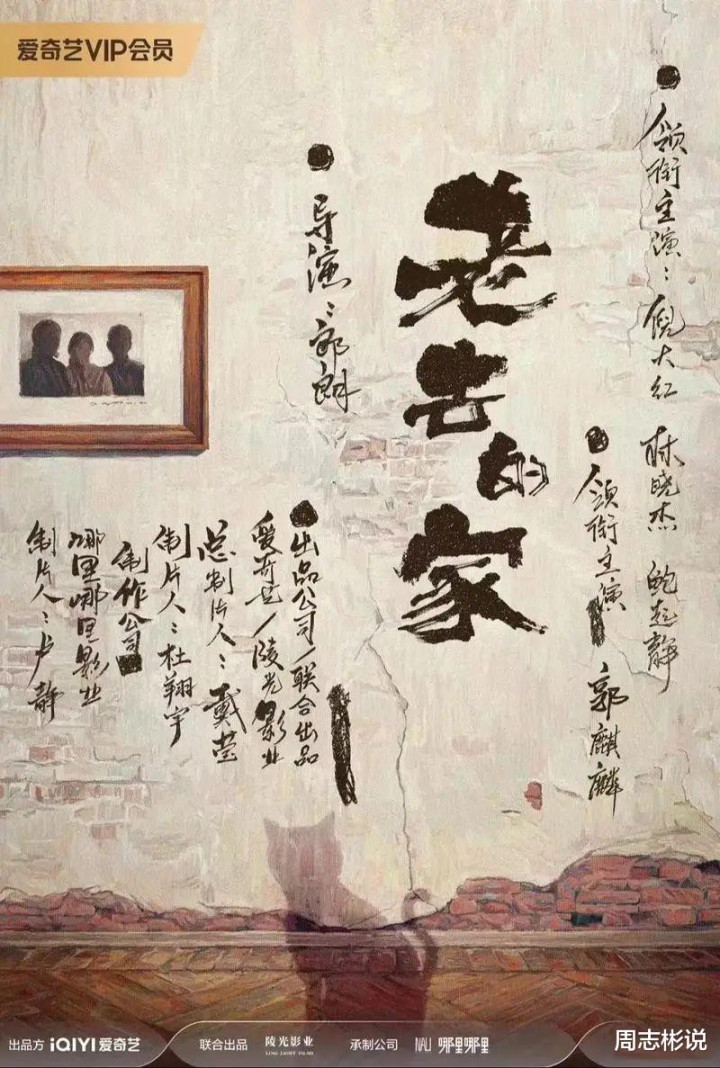 爱奇艺VIP会员
领衔主演：倪大红 林晓杰 鲍起静
领衔主演 郭麒麟
老去的家
导演：郎朗
出品公司/联合出品
爱奇艺/陵光影业
总制片人：戴莹
制片人：杜翔宇
制作公司
哪里哪里影业
制片人：卢静
出品方 iQIYI爱奇艺
联合出品 陵光影业
LING LIGHT FILMS
承制公司 NALI 哪里哪里
周志彬说